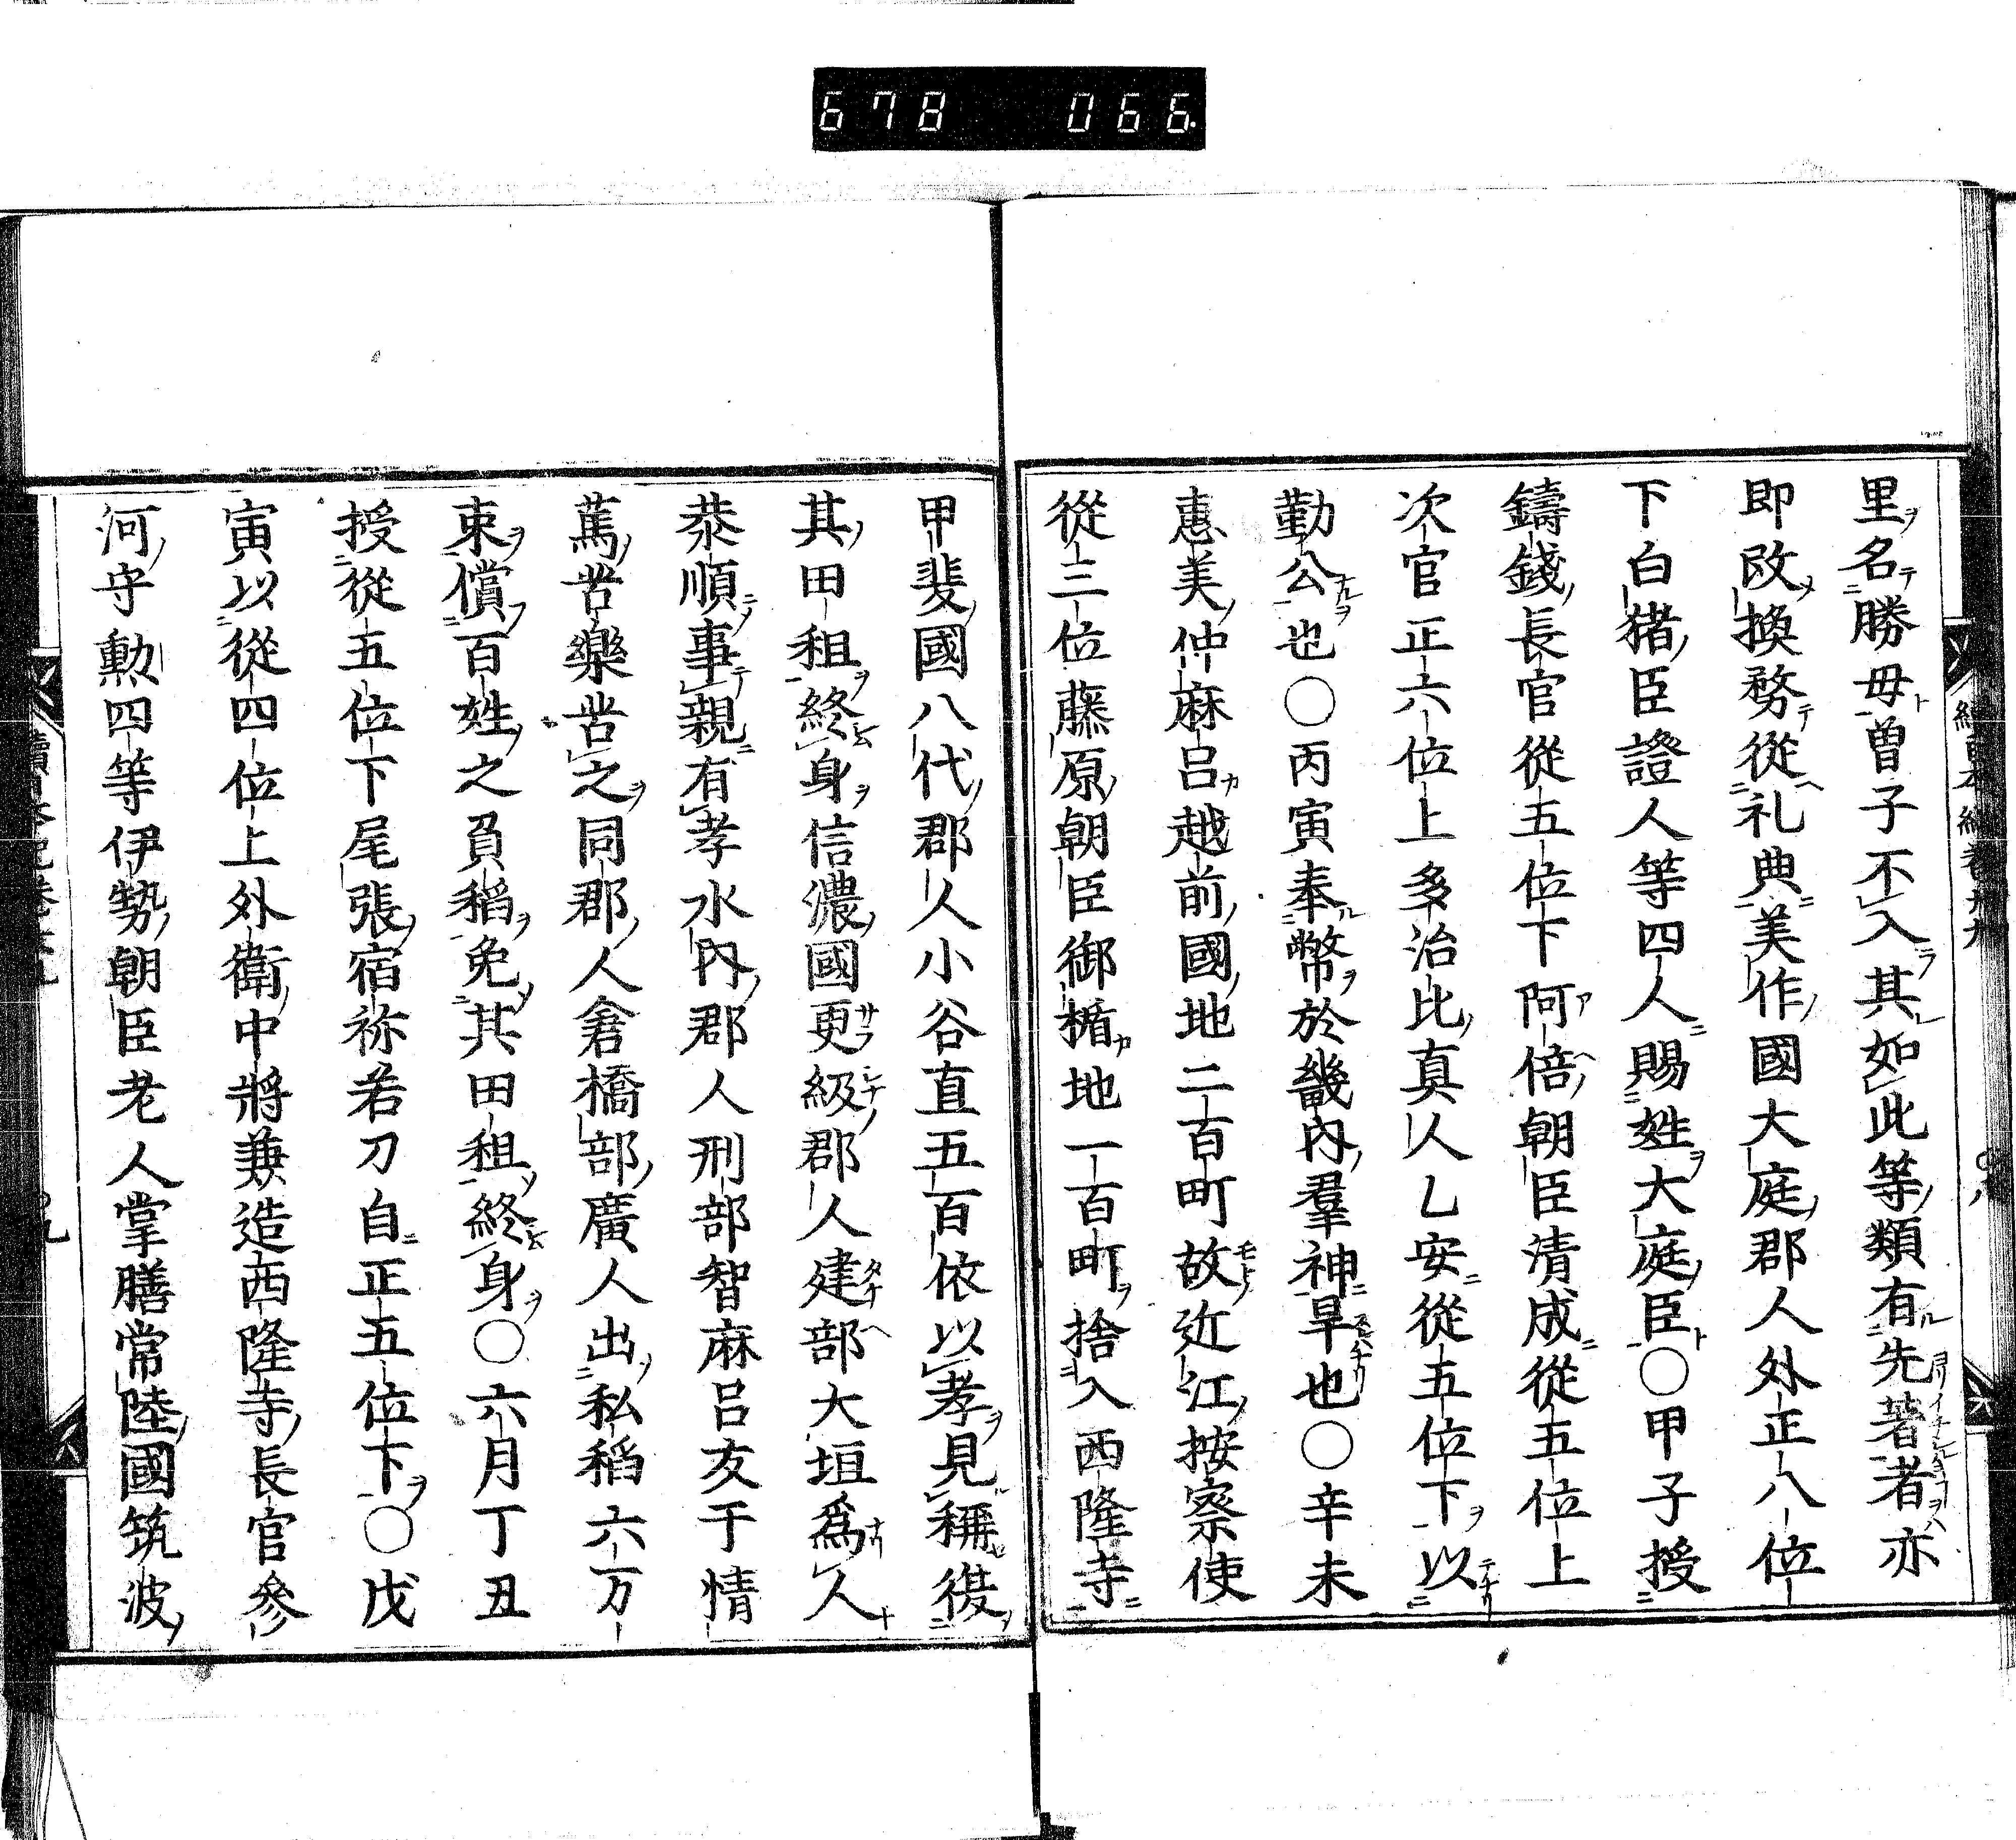 678 066
里名勝母曽子不入其如此等類有先著者亦
即改換務從礼典美作國大庭郡人外正八位
下白猪臣證人等四人賜姓大庭臣〇甲子授
鑄錢長官從五位下阿倍朝臣清成從五位上
次官正六位上多治比真人乙安從五位下以
勤公也〇丙寅奉幣於畿內羣神旱也〇辛未
惠美仲麻呂越前國地二百町故近江按察使
從三位藤原朝臣御楯地一百町捨入西隆寺
甲斐國八代郡人小谷直五百依以孝見稱復
其田租終身信濃國更級郡人建部大垣爲人
恭順事親有孝水內郡人刑部智麻呂友于情
篤苦樂共之同郡人倉橋部廣人出私稻六万
束償百姓之負稻免其田租終身〇六月丁丑
授從五位下尾張宿祢若刀自正五位下〇戊
寅以從四位上外衛中將兼造西隆寺長官參
河守勳四等伊勢朝臣老人掌膳常陸國筑波